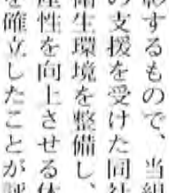 彰するもので、当
の支援を受けた同社
衛生環境を整備し、
産性を向上させる体
を確立したことが評